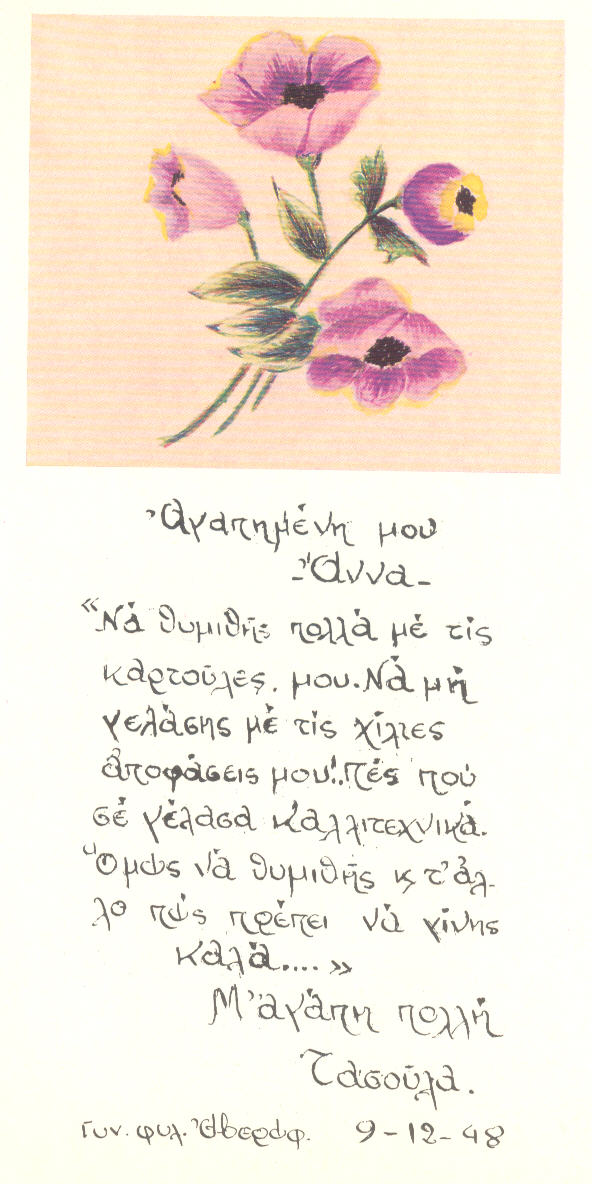 Ἀγαπημένη μου
-Ἄννα-
“Νά θυμιθῆς πολλά μέ τίς
καρτοῦλες, μου. Νά μή
γελάσης μέ τίς χίλιες
ἀποφάσεις μου!.Πές πού
σέ γέλασα καλλιτεχνικά.
Ὅμως νά θυμιθῆς κ τ' ἄλ-
λο πώς πρέπει νά γίνης
καλά....»
Μ' ἀγάπη πολλή
Τασοῦλα.
Γυν. φυλ. Ἀβερώφ. 9-12-48